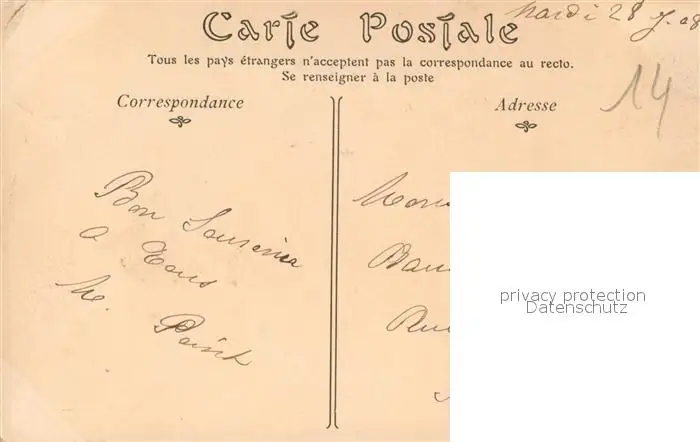 Carte Postale
Mardi 28 J. 08
Tous les pays étrangers n'acceptent pas la correspondance au recto.
Se renseigner à la poste
Correspondance
Adresse
14
Bon Souvenir
a Tous
M.
Rue
privacy protection
Datenschutz